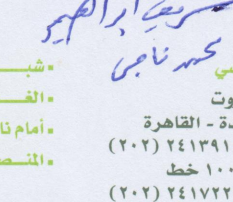 شريف ابراهيم
محمد ناجى
شبـ
الغـ
أمام نا
المنصـ
ـي
وت
ـدة - القاهرة
(٢٠٢) ٢٤١٣٩١
١٠٠ خط
(٢٠٢) ٢٤١٧٢٢